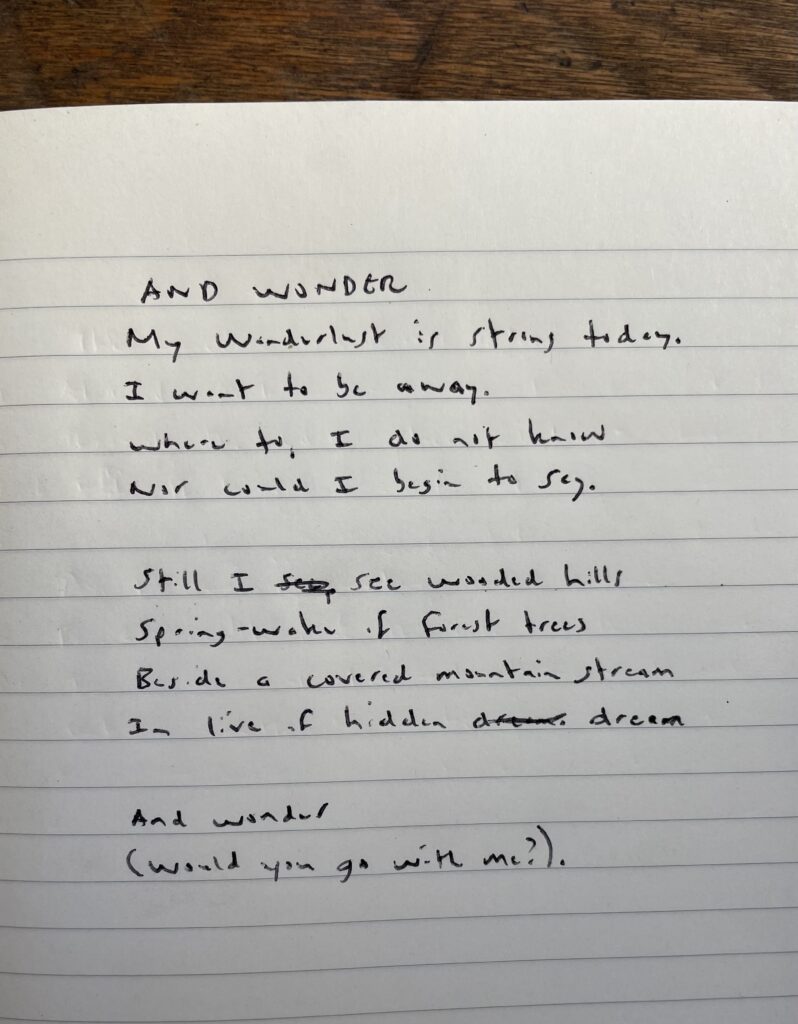 AND WONDER
My Wanderlust is strong today.
I want to be away.
Where to, I do not know
Nor could I begin to say.
Still I see wooded hills
Spring-woke of forest trees
Beside a covered mountain stream
In live of hidden dream
And wonder
(Would you go with me?).